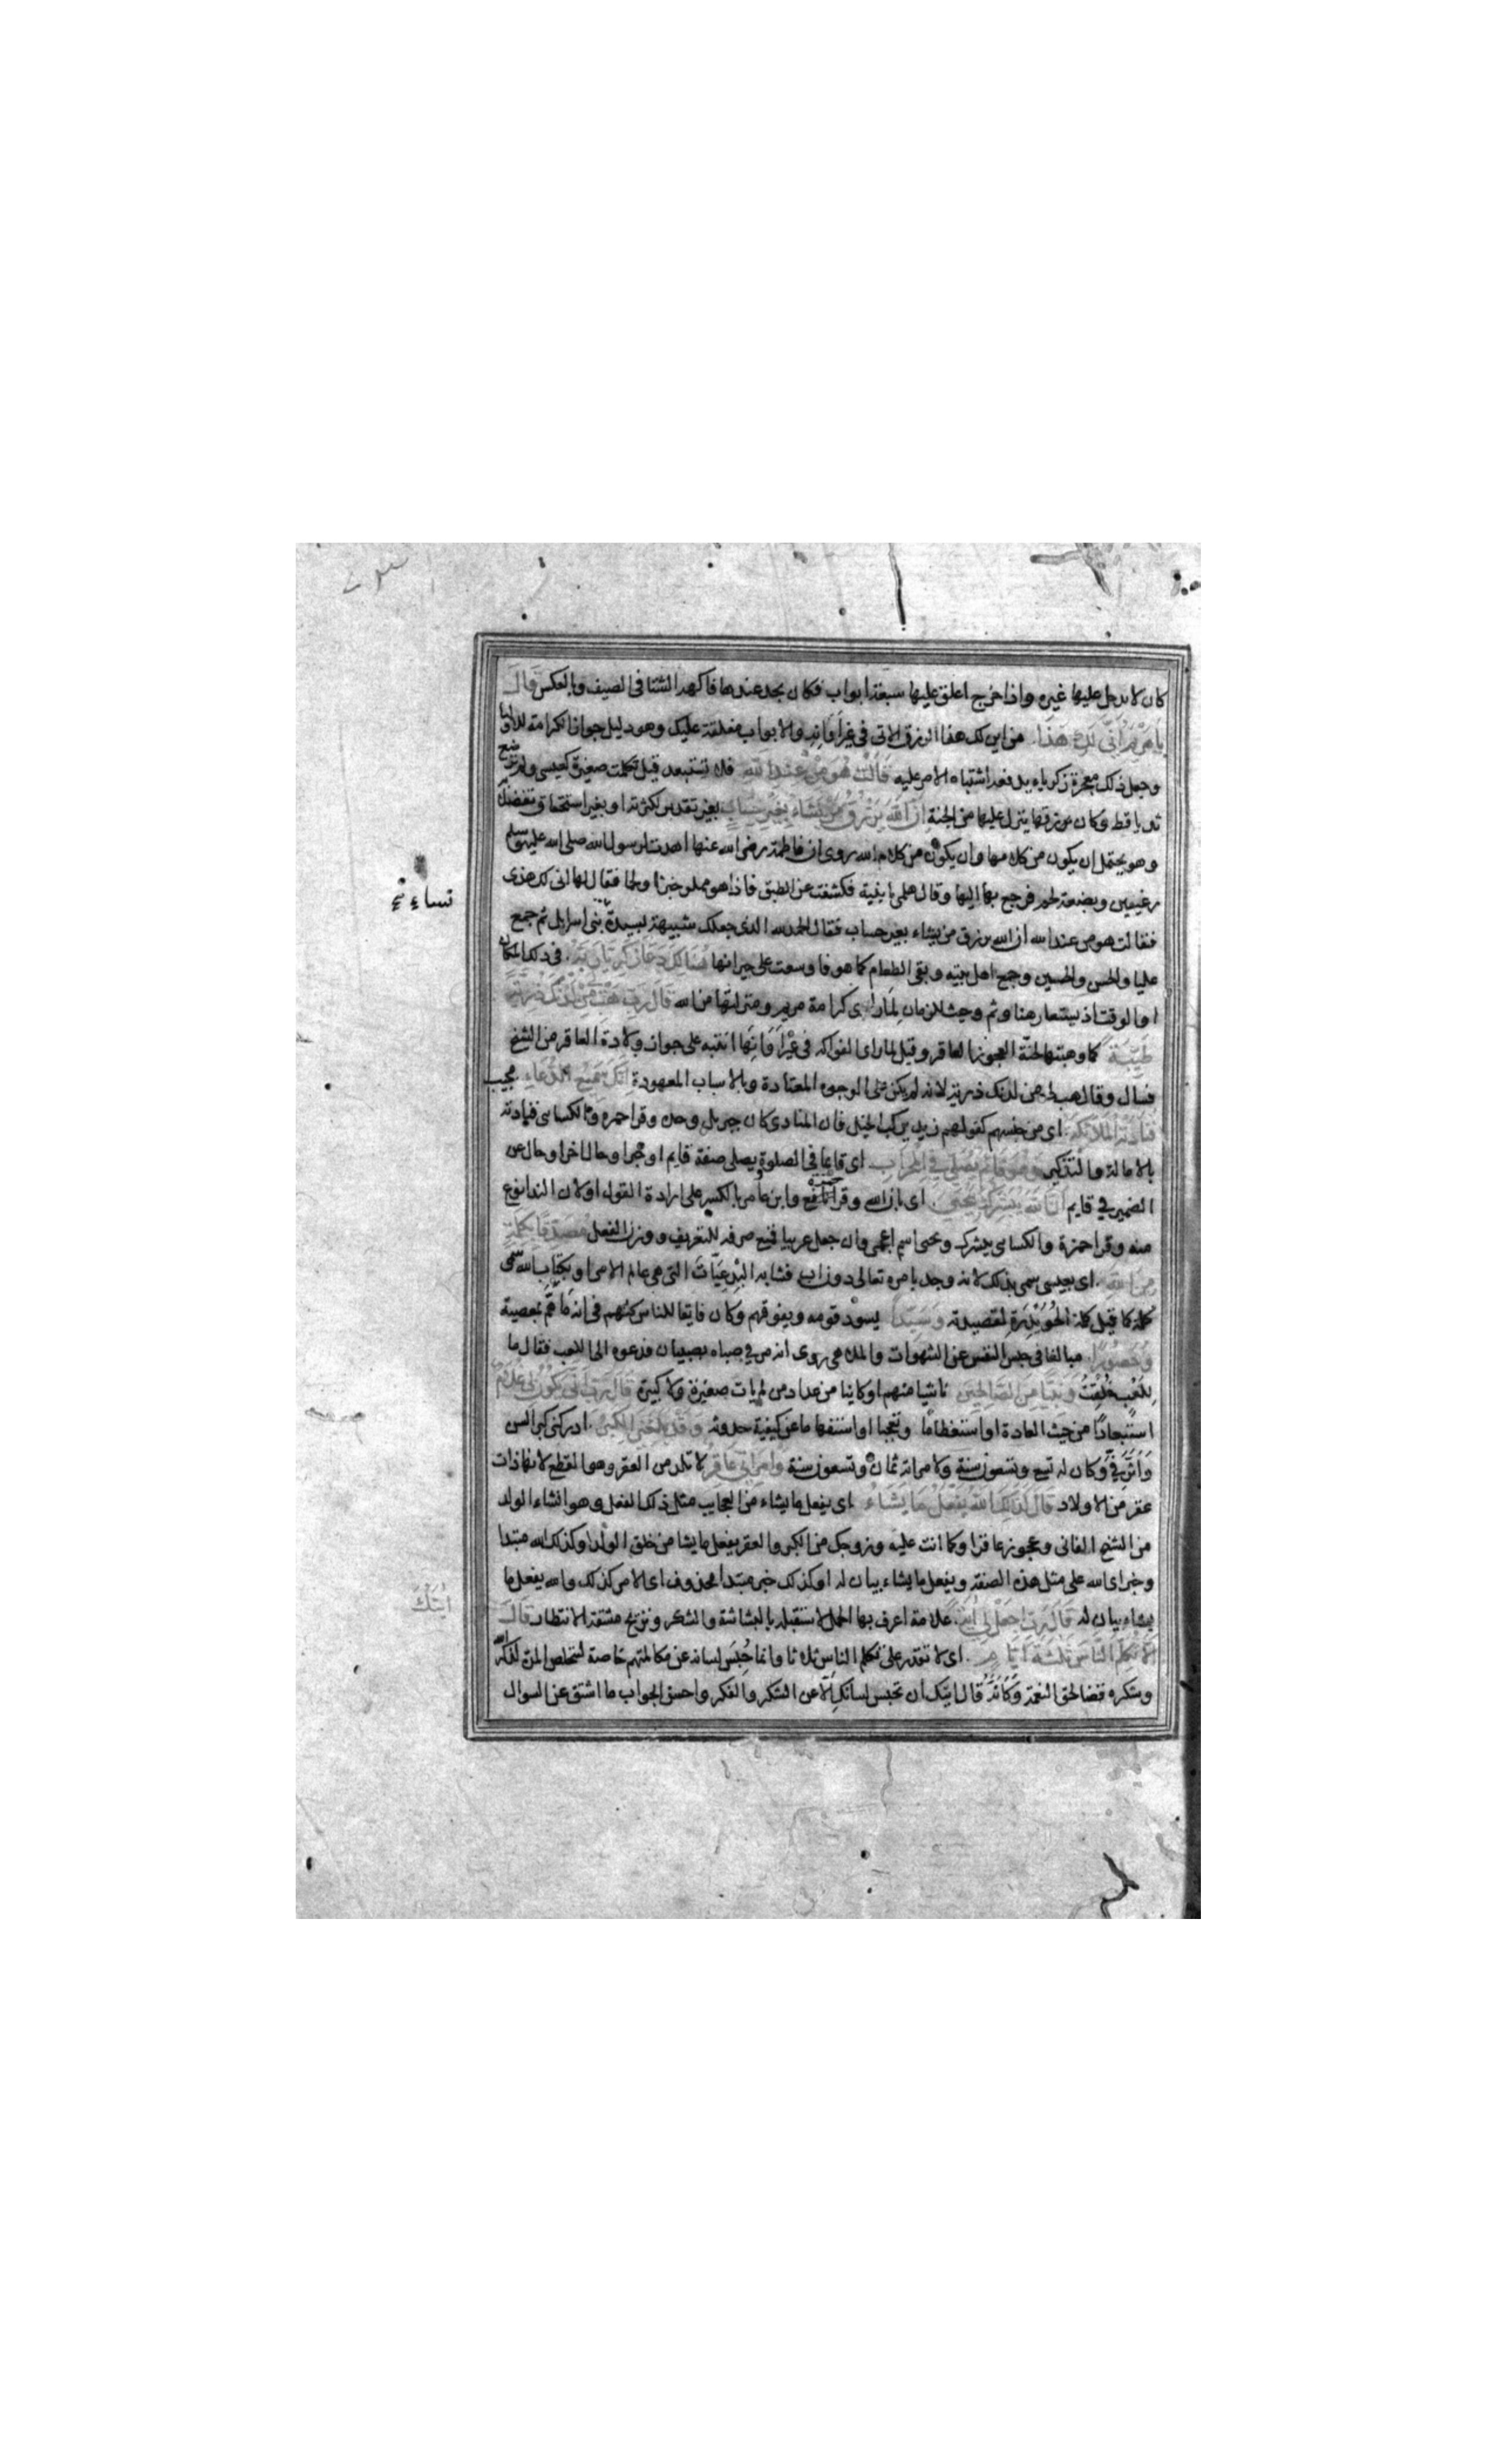 كان لا يدخل عليها غيره واذا خرج اغلق عليها سبعة ابواب فكان يجد عندها فاكهة الشتا فى الصيف وبالعكس قال
يا مريم انى لك هذا. من اين لك هذا الرزق الاتى فى غير اوانه والابواب مغلقة عليك وهو دليل جواز الكرامة للاوليا
وجعل ذلك معجزة زكريا يدفعه اشتباه الامر عليه قالت هو من عند الله فلا تستبعد قيل تكلمت صغيرة كعيسى ولم ترضع
ثديا قط وكان رزقها ينزل عليها من الجنة ان الله يرزق من يشاء بغير حساب بغير تقدير لكثرته او بغير استحقاق تفضلا
وهو يحتمل ان يكون من كلامها وان يكون من كلام الله روى ان فاطمة رضى الله عنها اهدت لرسول الله صلى الله عليه وسلم
رغيفين وبضعة لحم فرجع بها اليها وقال هلمى يا بنية فكشفت عن الطبق فاذا هو مملو خبزا ولحما فقال لها انى لك هذى
فقالت هو من عند الله ان الله يرزق من يشاء بغير حساب فقال الحمد لله الذى جعلك شبيهة لسيدة بنى اسرايل ثم جمع
نساء نخ
عليا والحسن والحسين وجمع اهل بيته وبقى الطعام كما هو فاوسعت على جيرانها هنالك دعا زكريا ربه. فى ذلك المكان
او الوقت اذ يستعار هنا وثم وحيث للزمان لما راى كرامة مريم ومنزلتها من الله قال رب هب لى من لدنك ذرية
طيبة كما وهبتها لحنة العجوز العاقر وقيل لما راى الفواكه فى غير اوانها انتبه على جواز ولادة العاقر من الشيخ
فسال وقال هب لى من لدنك ذرية لانه لم يكن على الوجوه المعتادة وبالاسباب المعهودة انك سميع الدعاء مجيب
فنادته الملائكة اى من جنسهم كقولهم زيد يركب الخيل فان المنادى كان جبريل وحده وقرا حمزه والكساى فناديه
بالامالة والتذكير وهو قائم يصلى فى المحراب اى قاىما فى الصلوة يصلى صفة قايم او خبر او حال اخر او حال عن
الضمير فى قايم ان الله يبشرك بيحيى. اى بان الله وقرا نافع وابن عامر بالكسر على ارادة القول او لان الندا نوع
منه وقرا حمزة والكساى يبشرك ويحيى اسم اعجمى وان جعل عربيا فمنع صرفه للتعريف ووزن الفعل مصدقا بكلمة
من الله. اى بعيسى سمى بذلك لانه وجد بامره تعالى دون اب فشابه البدعيات التى هى عالم الامر او بكتاب الله سمى
كلمة كما قيل كلمة الحويدرة لقصيدته وسيدا يسود قومه ويفوقهم وكان فايقا للناس كلهم فى انه ما هم بمعصية
وحصورا. مبالغا فى حبس النفس عن الشهوات والملاهى روى انه مر فى صباه بصبيان فدعوه الى اللعب فقال ما
للعب خلقت ونبيا من الصالحين ناشيا منهم او كاينا من عداد من لم يات صغيرة ولا كبيرة قال رب انى يكون لى غلام
استبعادا من حيث العادة او استعظاما وتعجبا او استفهاما عن كيفية حدوثه وقد بلغنى الكبر. ادركنى كبر السن
واثر فى وكان له تسع وتسعون سنة ولامراته ثمان وتسعون سنة وامراتى عاقر لا تلد من العقر وهو القطع لانها ذات
عقر من الاولاد قال كذلك الله يفعل ما يشاء اى يفعل ما يشاء من العجايب مثل ذلك الفعل وهو انشاء الولد
من الشيخ الفانى وعجوز عاقر او كما انت عليه وزوجك من الكبر والعقر يفعل ما يشا من خلق الولد او كذلك الله مبتدا
وخبر اى الله على مثل هذه الصفة ويفعل ما يشاء بيان له او كذلك خبر مبتدا محذوف اى الامر كذلك والله يفعل ما
يشاء بيان له قال رب اجعل لى اية. علامة اعرف بها الحمل لاستقبله بالبشاشة والشكر ونزيح مشقة الانتظار قال
ايتك
الا تكلم الناس ثلثة ايام. اى لا تقدر على تكلم الناس ثلاثا وانما حبس لسانه عن مكالمتهم خاصة لتخلص المدة لذكر الله
وشكره قضا لحق النعمة وكانه قال ايتك ان تحبس لسانك الا عن الشكر والفكر واحسن الجواب ما اشتق عن السوال